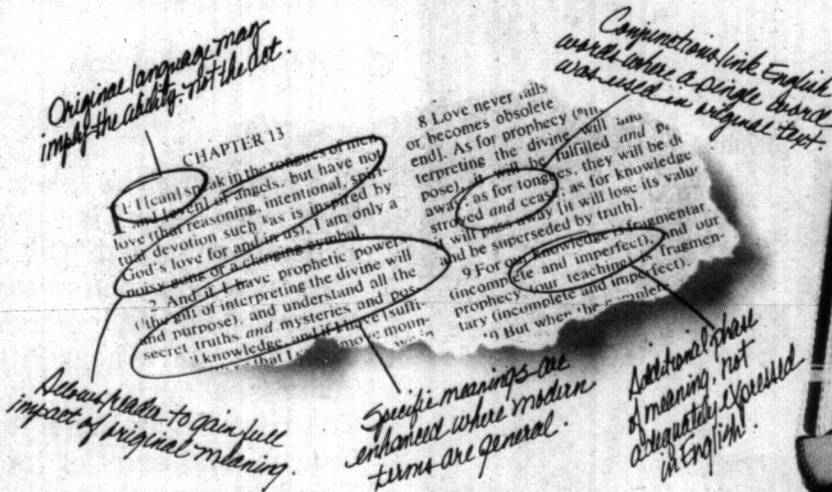 Original language may
imply the ability, not the act.
Conjunctions link English
words where a single word
was used in original text.
CHAPTER 13
IF I [can] speak in the tongues of men
and [even] of angels, but have not
love (that reasoning, intentional, spiri-
tual devotion such as is inspired by
God's love for and in us), I am only a
noisy gong or a clanging cymbal.
2 And if I have prophetic powers
(the gift of interpreting the divine will
and purpose), and understand all the
secret truths and mysteries and pos-
knowledge, and if I have [suffi-
so that I move moun-
8 Love never fails
or becomes obsolete
end]. As for prophecy
terpreting the divine will and
pose), it will be fulfilled and
away; as for tongues, they will be de
stroyed and cease; as for knowledge
it will pass away [it will lose its value
and be superseded by truth].
9 For our knowledge is fragmentar
(incomplete and imperfect), and our
prophecy (our teaching) is fragmen-
tary (incomplete and imperfect).
10 But when the complete
Allows reader to gain full
impact of original meaning.
Specific meanings are
enhanced where modern
terms are general.
Additional phase
of meaning, not
adequately expressed
in English.